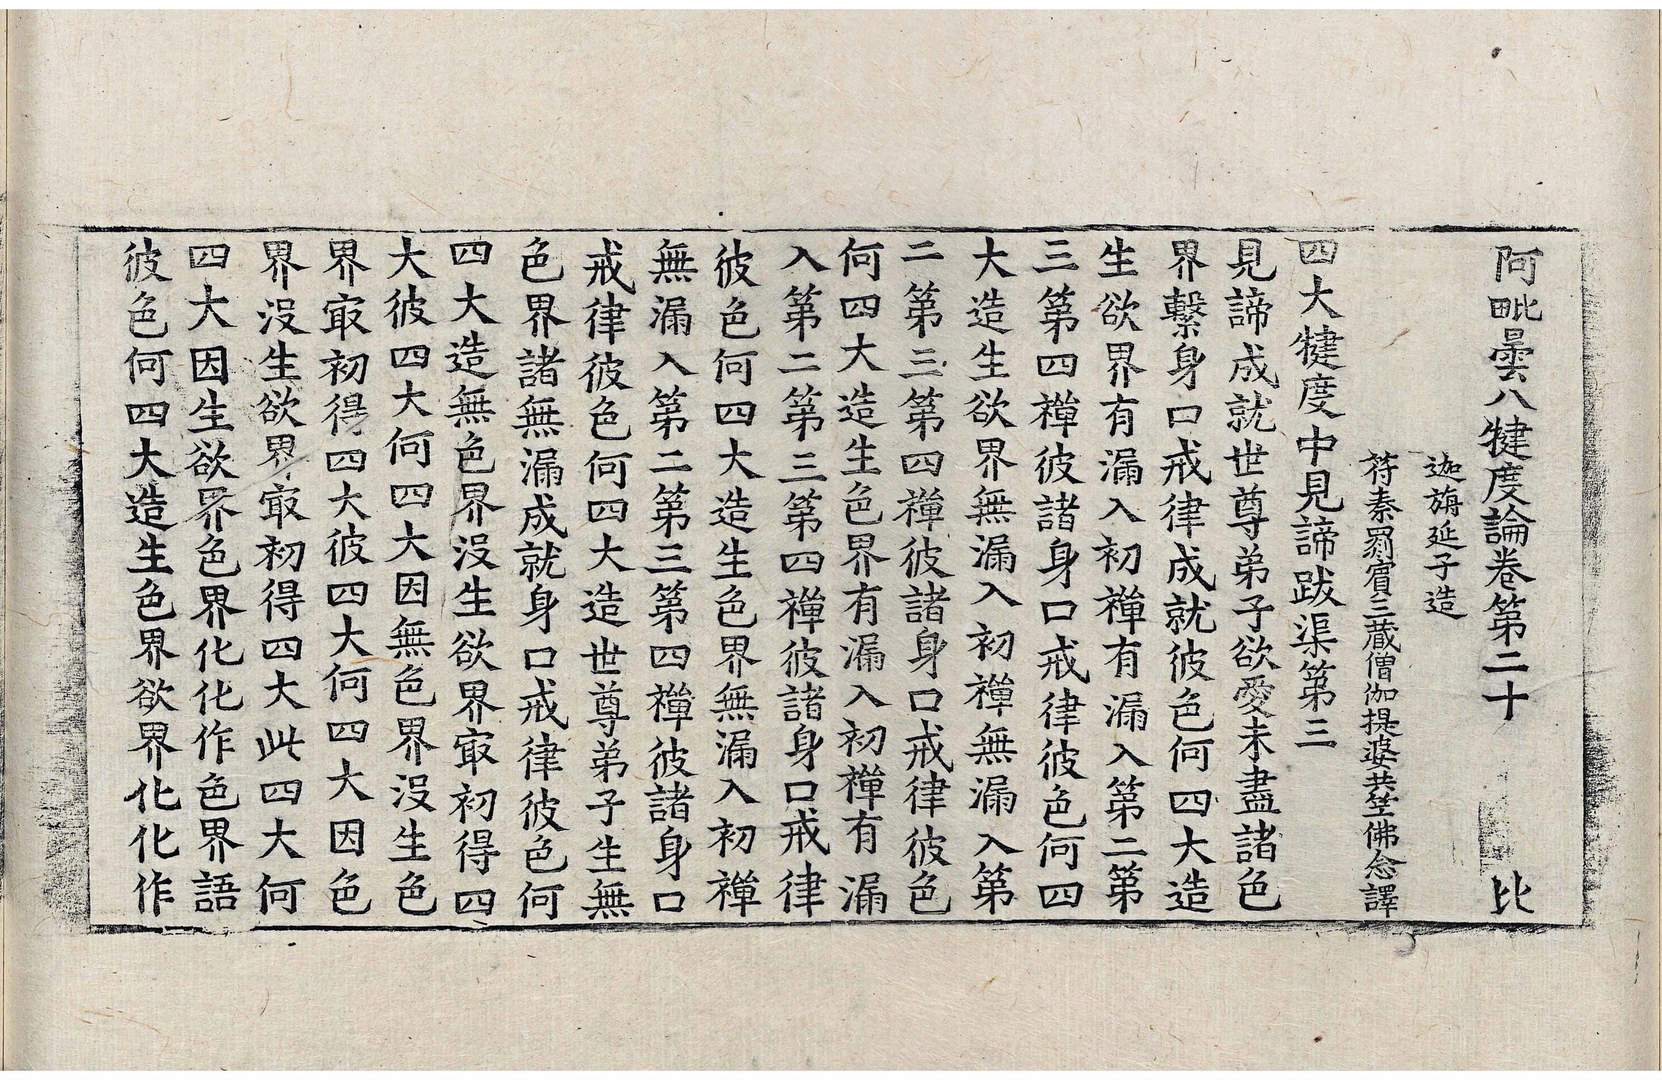 阿毗曇八犍度論卷第二十 比
迦旃延子造
苻秦罽賓三藏僧伽提婆共竺佛念譯
四大犍度中見諦跋渠第三
見諦成就世尊弟子欲愛未盡諸色
界繫身口戒律成就彼色何四大造
生欲界有漏入初禪有漏入第二第
三第四禪彼諸身口戒律彼色何四
大造生欲界無漏入初禪無漏入第
二第三第四禪彼諸身口戒律彼色
何四大造生色界有漏入初禪有漏
入第二第三第四禪彼諸身口戒律
彼色何四大造生色界無漏入初禪
無漏入第二第三第四禪彼諸身口
戒律彼色何四大造世尊弟子生無
色界諸無漏成就身口戒律彼色何
四大造無色界沒生欲界㝡初得四
大彼四大何四大因無色界沒生色
界㝡初得四大彼四大何四大因色
界沒生欲界㝡初得四大此四大何
四大因生欲界色界化化作色界語
彼色何四大造生色界欲界化化作